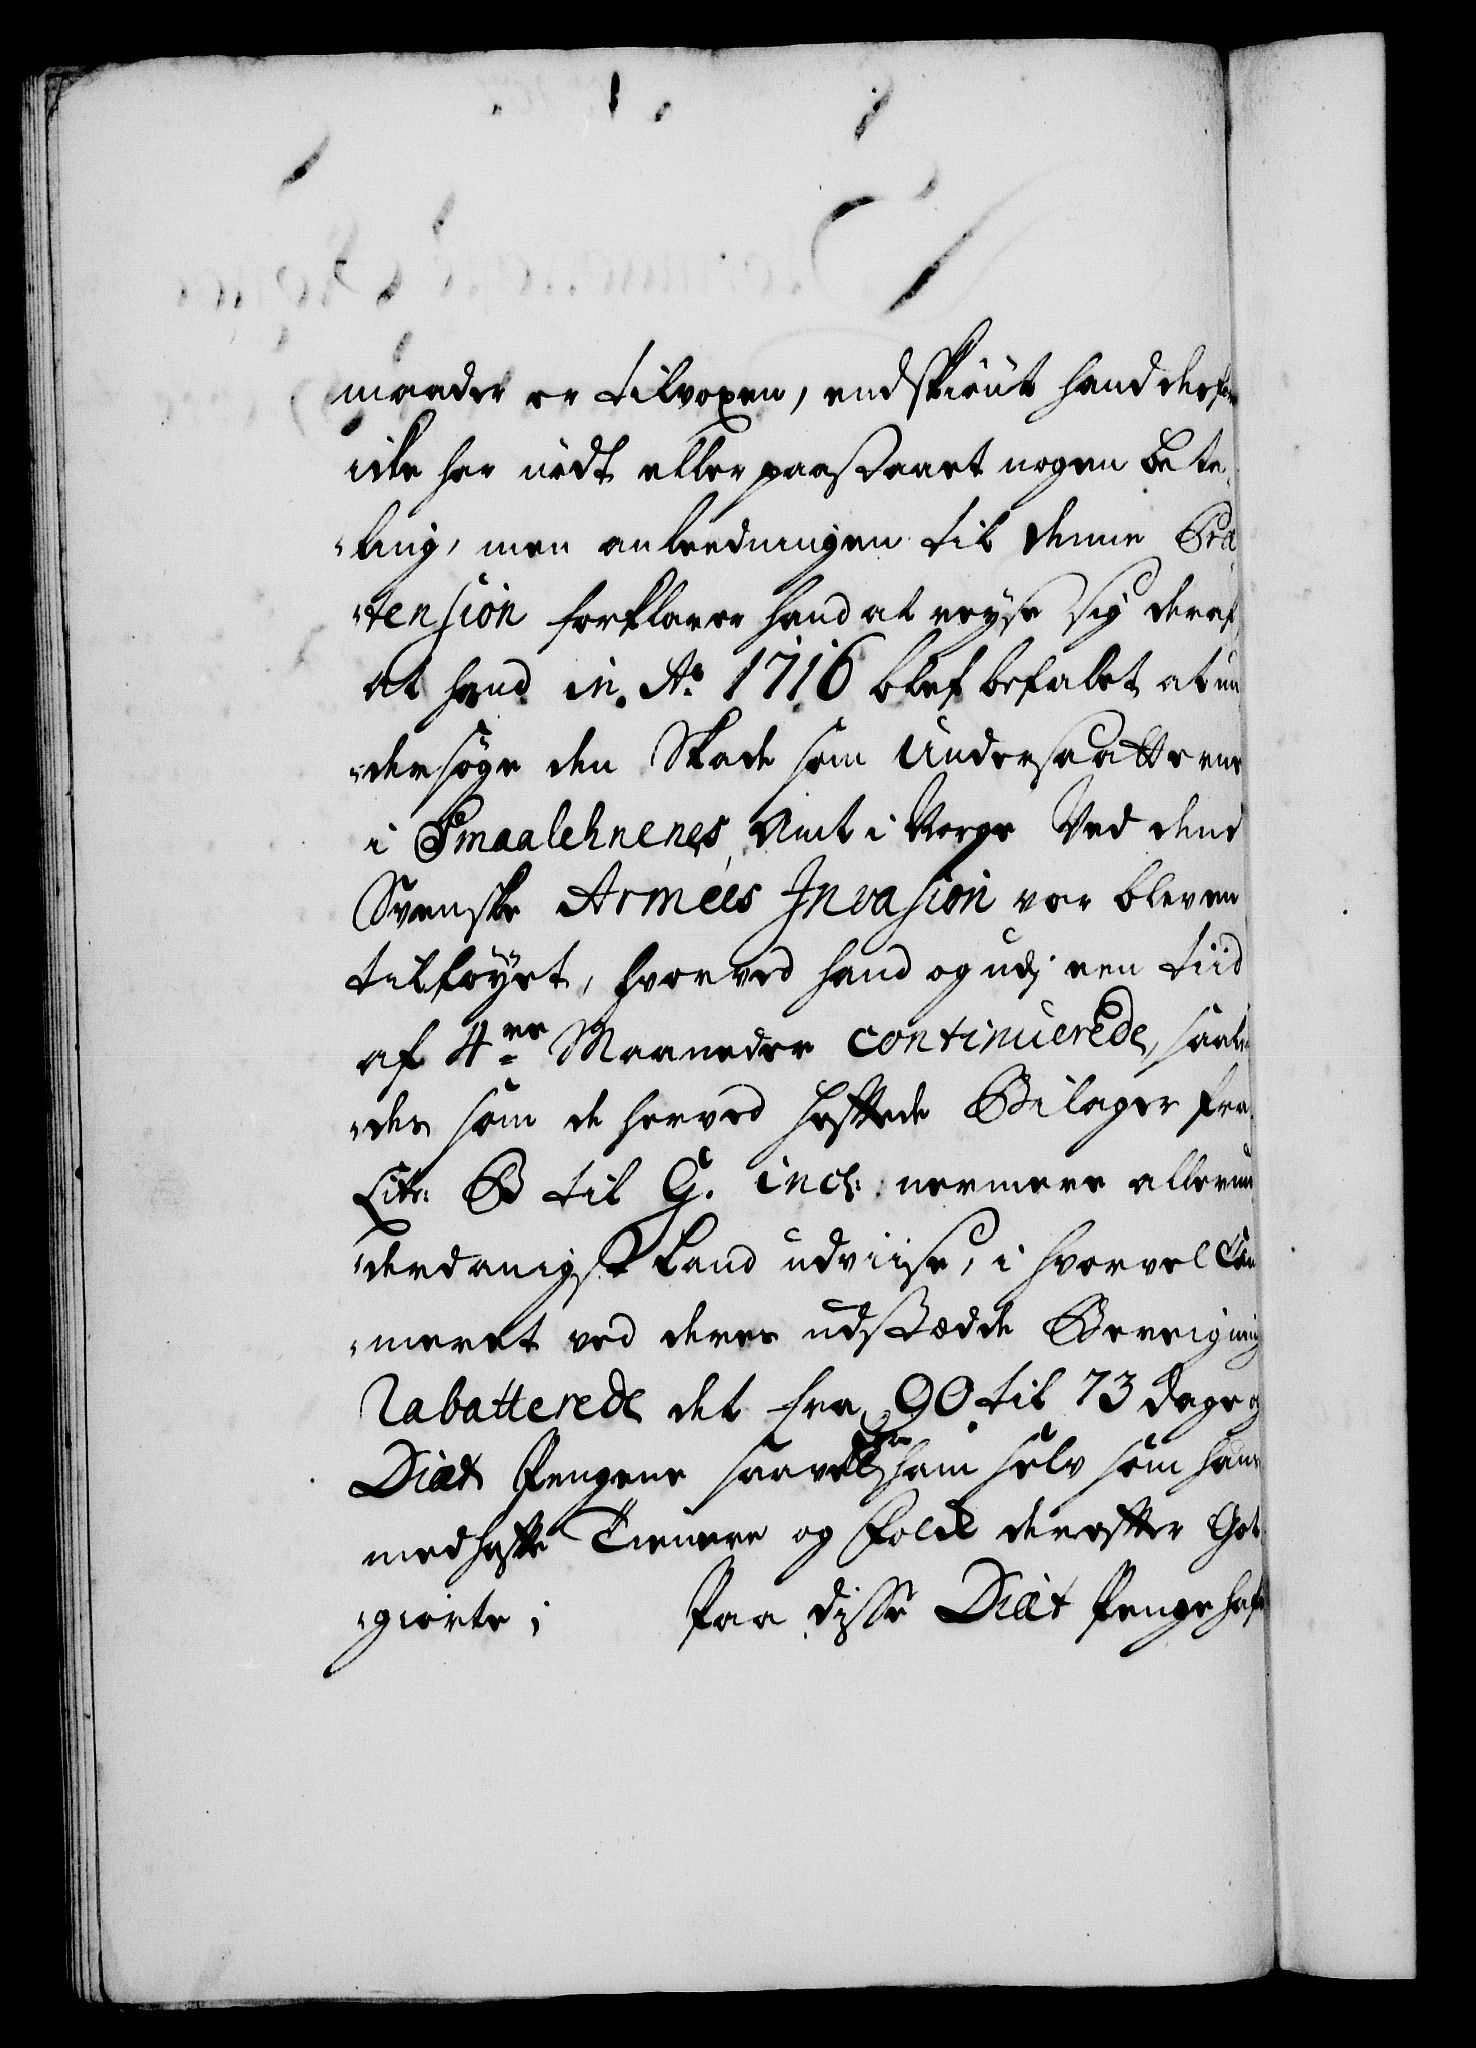 maader er tilvoxen, endskiönt hand derfor
icke har nödt eller paastaaet nogen beta,,
,,ling, men anleedningen til denne Præ,,
,,tension forklarer hand at reyse sig deraf,
at hand in Ao 1716 blef befalet at un
,,dersöge den Skade som Undersaatterne
i Smaalehnenes Amt i Norge Ved dend
Svenske Armées Invasion var bleven
tilföyet, hvorved hand og udj een tiid
af 4re Maaneder continuerede, saale
,,des som de herved heftede Bilager fra
Litr: B til G. incl: nermere allerun
,,derdanigst kand udviise, i hvorvel Cam
,,meret ved deres udstædde Bereigning
rabatterede det fra 90 til 73 dage og
Diæt Pengene saavel for ham selv som hans
medhafte Tienere og Folck derefter Got
,,giorte; Paa disse Diæt Penge haf